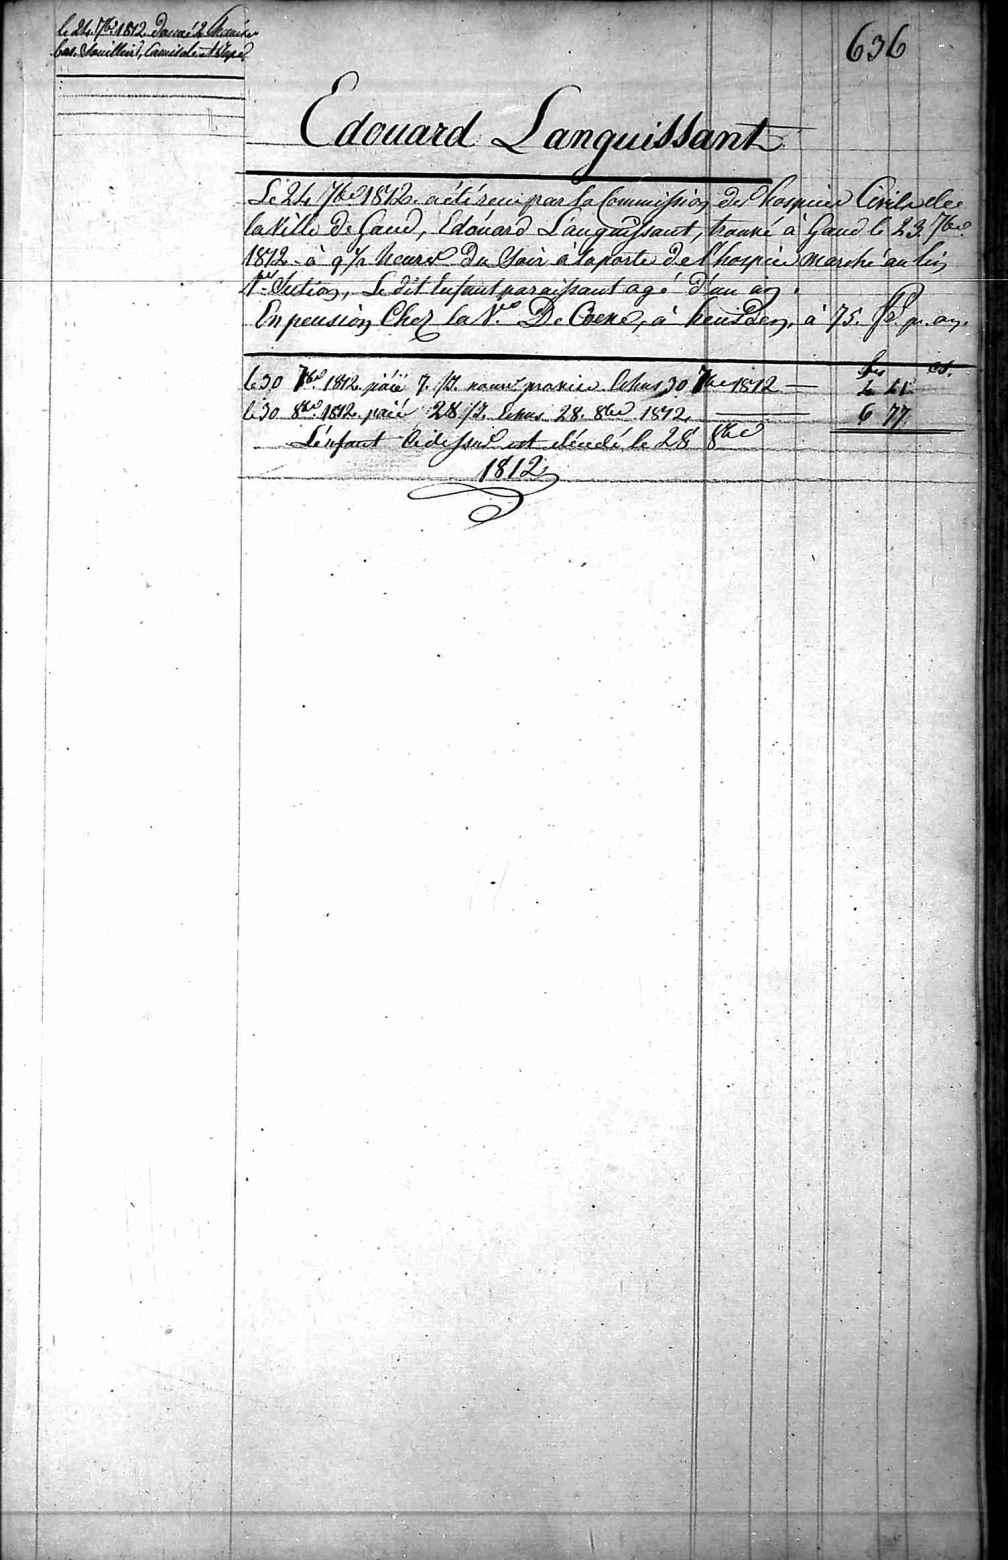 le 24. 7bre 1812 donné 2 Chemises
bas, Souilliers, Camisole et Jupe
636
Edouard Languissant
Le 24 7bre 1812. a été reçu par la Commission des hospices Civils de
la Ville de Gand, Edouard Languissant, trouvé à Gand le 23. 7bre
1812 à 9 1/2 heures du Soir à la porte de l'hospice marché au lin
1re Section, Le dit Enfant paraissant agé d'un an.
En pension Chez la Ve. De Coene, à heusden, à 75. fs p. an.
fs cs.
le 30 7bre 1812. paié 7. /J. nourre echus 30 7bre 1812
le 30 8bre 1812. paié 28 /J. Echus 28. 8bre 1812. 6 77
L'enfant ci dessus est décédé le 28 8bre
1812.